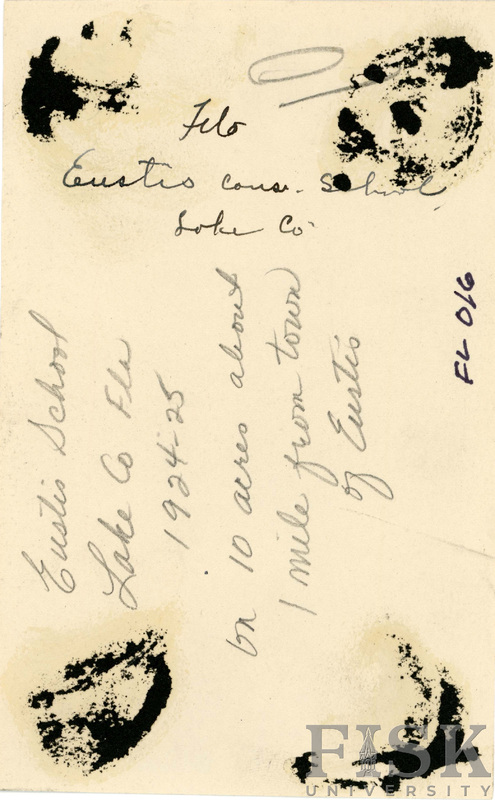 Fla
Eustis Cons. School
Lake Co
Eustis School
Lake Co Fla
1924-25
on 10 acres about
1 mile from town
of Eustis
FL 016
FISK
UNIVERSITY